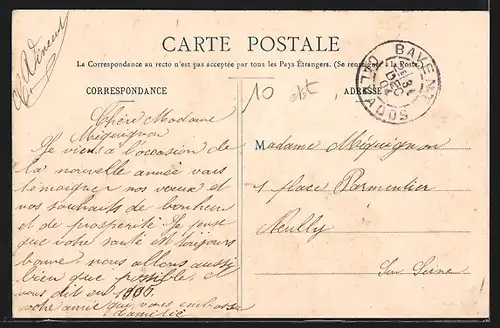 CARTE POSTALE
La Correspondance au recto n'est pas acceptée par tous les Pays Étrangers. (Se renseigner à la Poste.)
CORRESPONDANCE
ADRESSE
BAVENT
31
DEC
04
CALVADOS
10
Vincent
Chère Madame
Méquignon
Je viens à l'occasion de
la nouvelle année vous
témoigner nos voeux et
nos souhaits de bonheur
et de prospérité Je pense
que votre santé est toujours
bonne, nous allons aussi
bien que possible, et
vous dit en 1905.
votre amie qui vous embrasse
d'amitié
Madame Méquignon
1 place Parmentier
Neuilly
Sur Seine